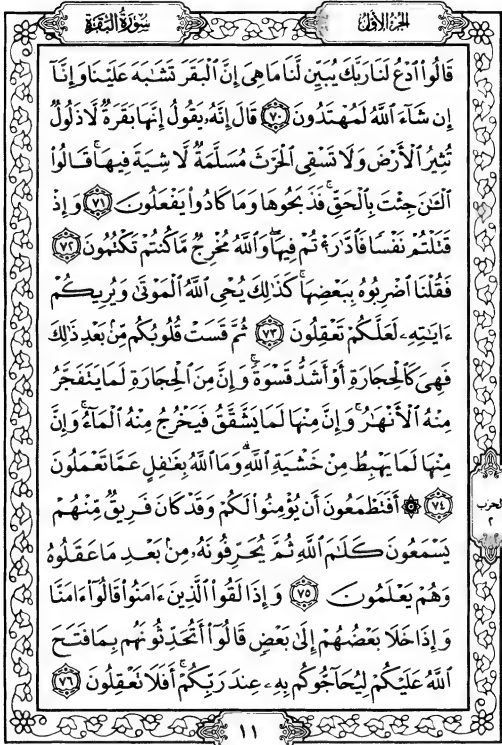 سُورَةُ البَقَرَةِ
الجُزءُ الأَوَّلُ
قَالُوا۟ ٱدْعُ لَنَا رَبَّكَ يُبَيِّن لَّنَا مَا هِىَ إِنَّ ٱلْبَقَرَ تَشَٰبَهَ عَلَيْنَا وَإِنَّآ
إِن شَآءَ ٱللَّهُ لَمُهْتَدُونَ ٧٠ قَالَ إِنَّهُۥ يَقُولُ إِنَّهَا بَقَرَةٌ لَّا ذَلُولٌ
تُثِيرُ ٱلْأَرْضَ وَلَا تَسْقِى ٱلْحَرْثَ مُسَلَّمَةٌ لَّا شِيَةَ فِيهَا ۚ قَالُوا۟
ٱلْـَٰٔنَ جِئْتَ بِٱلْحَقِّ ۚ فَذَبَحُوهَا وَمَا كَادُوا۟ يَفْعَلُونَ ٧١ وَإِذْ
قَتَلْتُمْ نَفْسًا فَٱدَّٰرَْٰٔتُمْ فِيهَا ۖ وَٱللَّهُ مُخْرِجٌ مَّا كُنتُمْ تَكْتُمُونَ ٧٢
فَقُلْنَا ٱضْرِبُوهُ بِبَعْضِهَا ۚ كَذَٰلِكَ يُحْىِ ٱللَّهُ ٱلْمَوْتَىٰ وَيُرِيكُمْ
ءَايَٰتِهِۦ لَعَلَّكُمْ تَعْقِلُونَ ٧٣ ثُمَّ قَسَتْ قُلُوبُكُم مِّنۢ بَعْدِ ذَٰلِكَ
فَهِىَ كَٱلْحِجَارَةِ أَوْ أَشَدُّ قَسْوَةً ۚ وَإِنَّ مِنَ ٱلْحِجَارَةِ لَمَا يَتَفَجَّرُ
مِنْهُ ٱلْأَنْهَٰرُ ۚ وَإِنَّ مِنْهَا لَمَا يَشَّقَّقُ فَيَخْرُجُ مِنْهُ ٱلْمَآءُ ۚ وَإِنَّ
مِنْهَا لَمَا يَهْبِطُ مِنْ خَشْيَةِ ٱللَّهِ ۗ وَمَا ٱللَّهُ بِغَٰفِلٍ عَمَّا تَعْمَلُونَ
٧٤ ۞ أَفَتَطْمَعُونَ أَن يُؤْمِنُوا۟ لَكُمْ وَقَدْ كَانَ فَرِيقٌ مِّنْهُمْ
يَسْمَعُونَ كَلَٰمَ ٱللَّهِ ثُمَّ يُحَرِّفُونَهُۥ مِنۢ بَعْدِ مَا عَقَلُوهُ
وَهُمْ يَعْلَمُونَ ٧٥ وَإِذَا لَقُوا۟ ٱلَّذِينَ ءَامَنُوا۟ قَالُوٓا۟ ءَامَنَّا
وَإِذَا خَلَا بَعْضُهُمْ إِلَىٰ بَعْضٍ قَالُوٓا۟ أَتُحَدِّثُونَهُم بِمَا فَتَحَ
ٱللَّهُ عَلَيْكُمْ لِيُحَآجُّوكُم بِهِۦ عِندَ رَبِّكُمْ ۚ أَفَلَا تَعْقِلُونَ ٧٦
الحزب
٢
١١